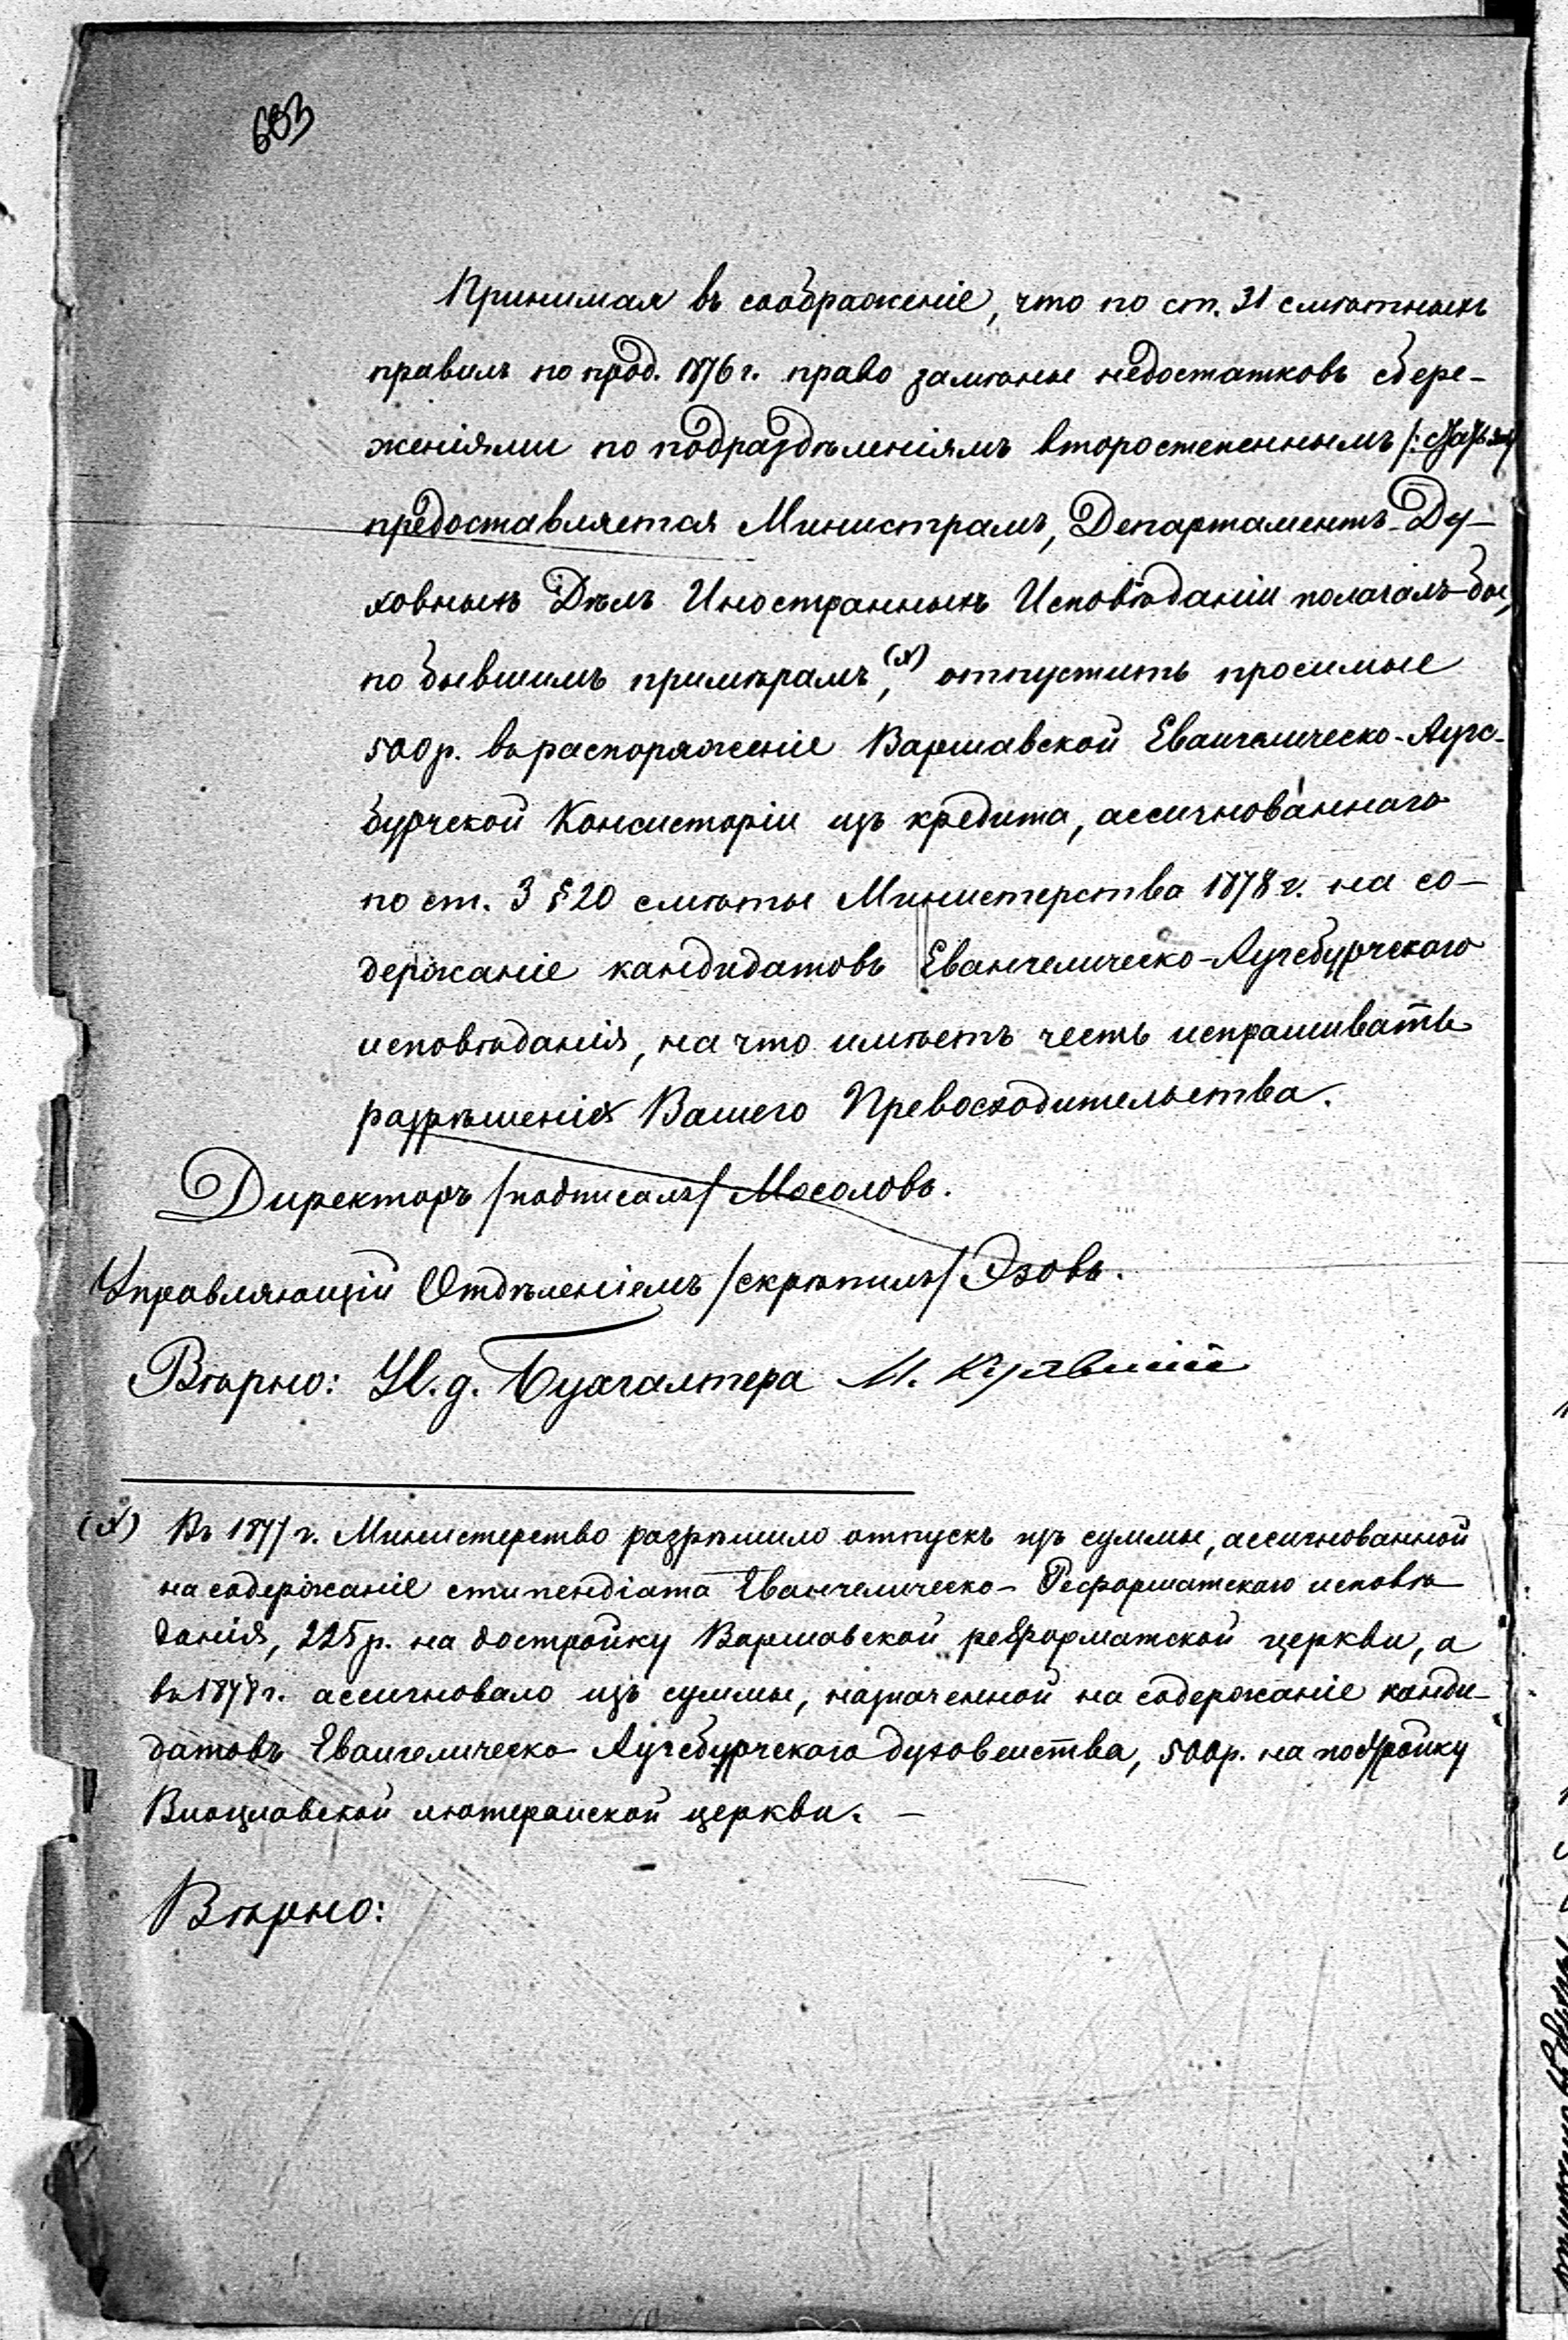 603
Принимая въ соображеніе, что по ст. 31 смѣтныхъ
правилъ по прод. 1876 г. право замѣны недостатковъ сбере-
женіями по подраздѣленіямъ второстепеннымъ /: статьямъ
предоставляется Министрамъ, Департаментъ Ду-
ховныхъ Дѣлъ Иностранныхъ Исповѣданій полагалъ-бы,
по бывшимъ примѣрамъ, (х) отпустить просимые
500 р. въ распоряженіе Варшавской Евангелическо-Аугс-
бургской Консисторіи изъ кредита, ассигнованнаго
по ст. 3 § 20 смѣты Министерства 1878 г. на со-
держаніе кандидатовъ Евангелическо-Аугсбургского
исповѣданія, на что имѣетъ честь испрашивать
разрѣшенія Вашего Превосходительства.
Директоръ /подписалъ/ Мосоловъ.
Управляющій Отдѣленіемъ /скрѣпилъ/ Эзовъ.
Вѣрно: И. д. Бухгалтера
(х) Въ 1877 г. Министерство разрѣшило отпускъ изъ суммы, ассигнованной
на содержаніе стипендіата Евангелическо-Реформатскаго исповѣ
данія, 225 р. на достройку Варшавской реформатской церкви, а
въ 1878 г. ассигновало изъ суммы, назначенной на содержаніе канди-
датовъ Евангелическо-Аугсбургскаго духовенства, 500 р. на постройку
Влоцлавской лютеранской церкви. —
Вѣрно: